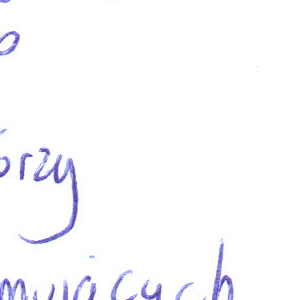 o
órzy
mujących